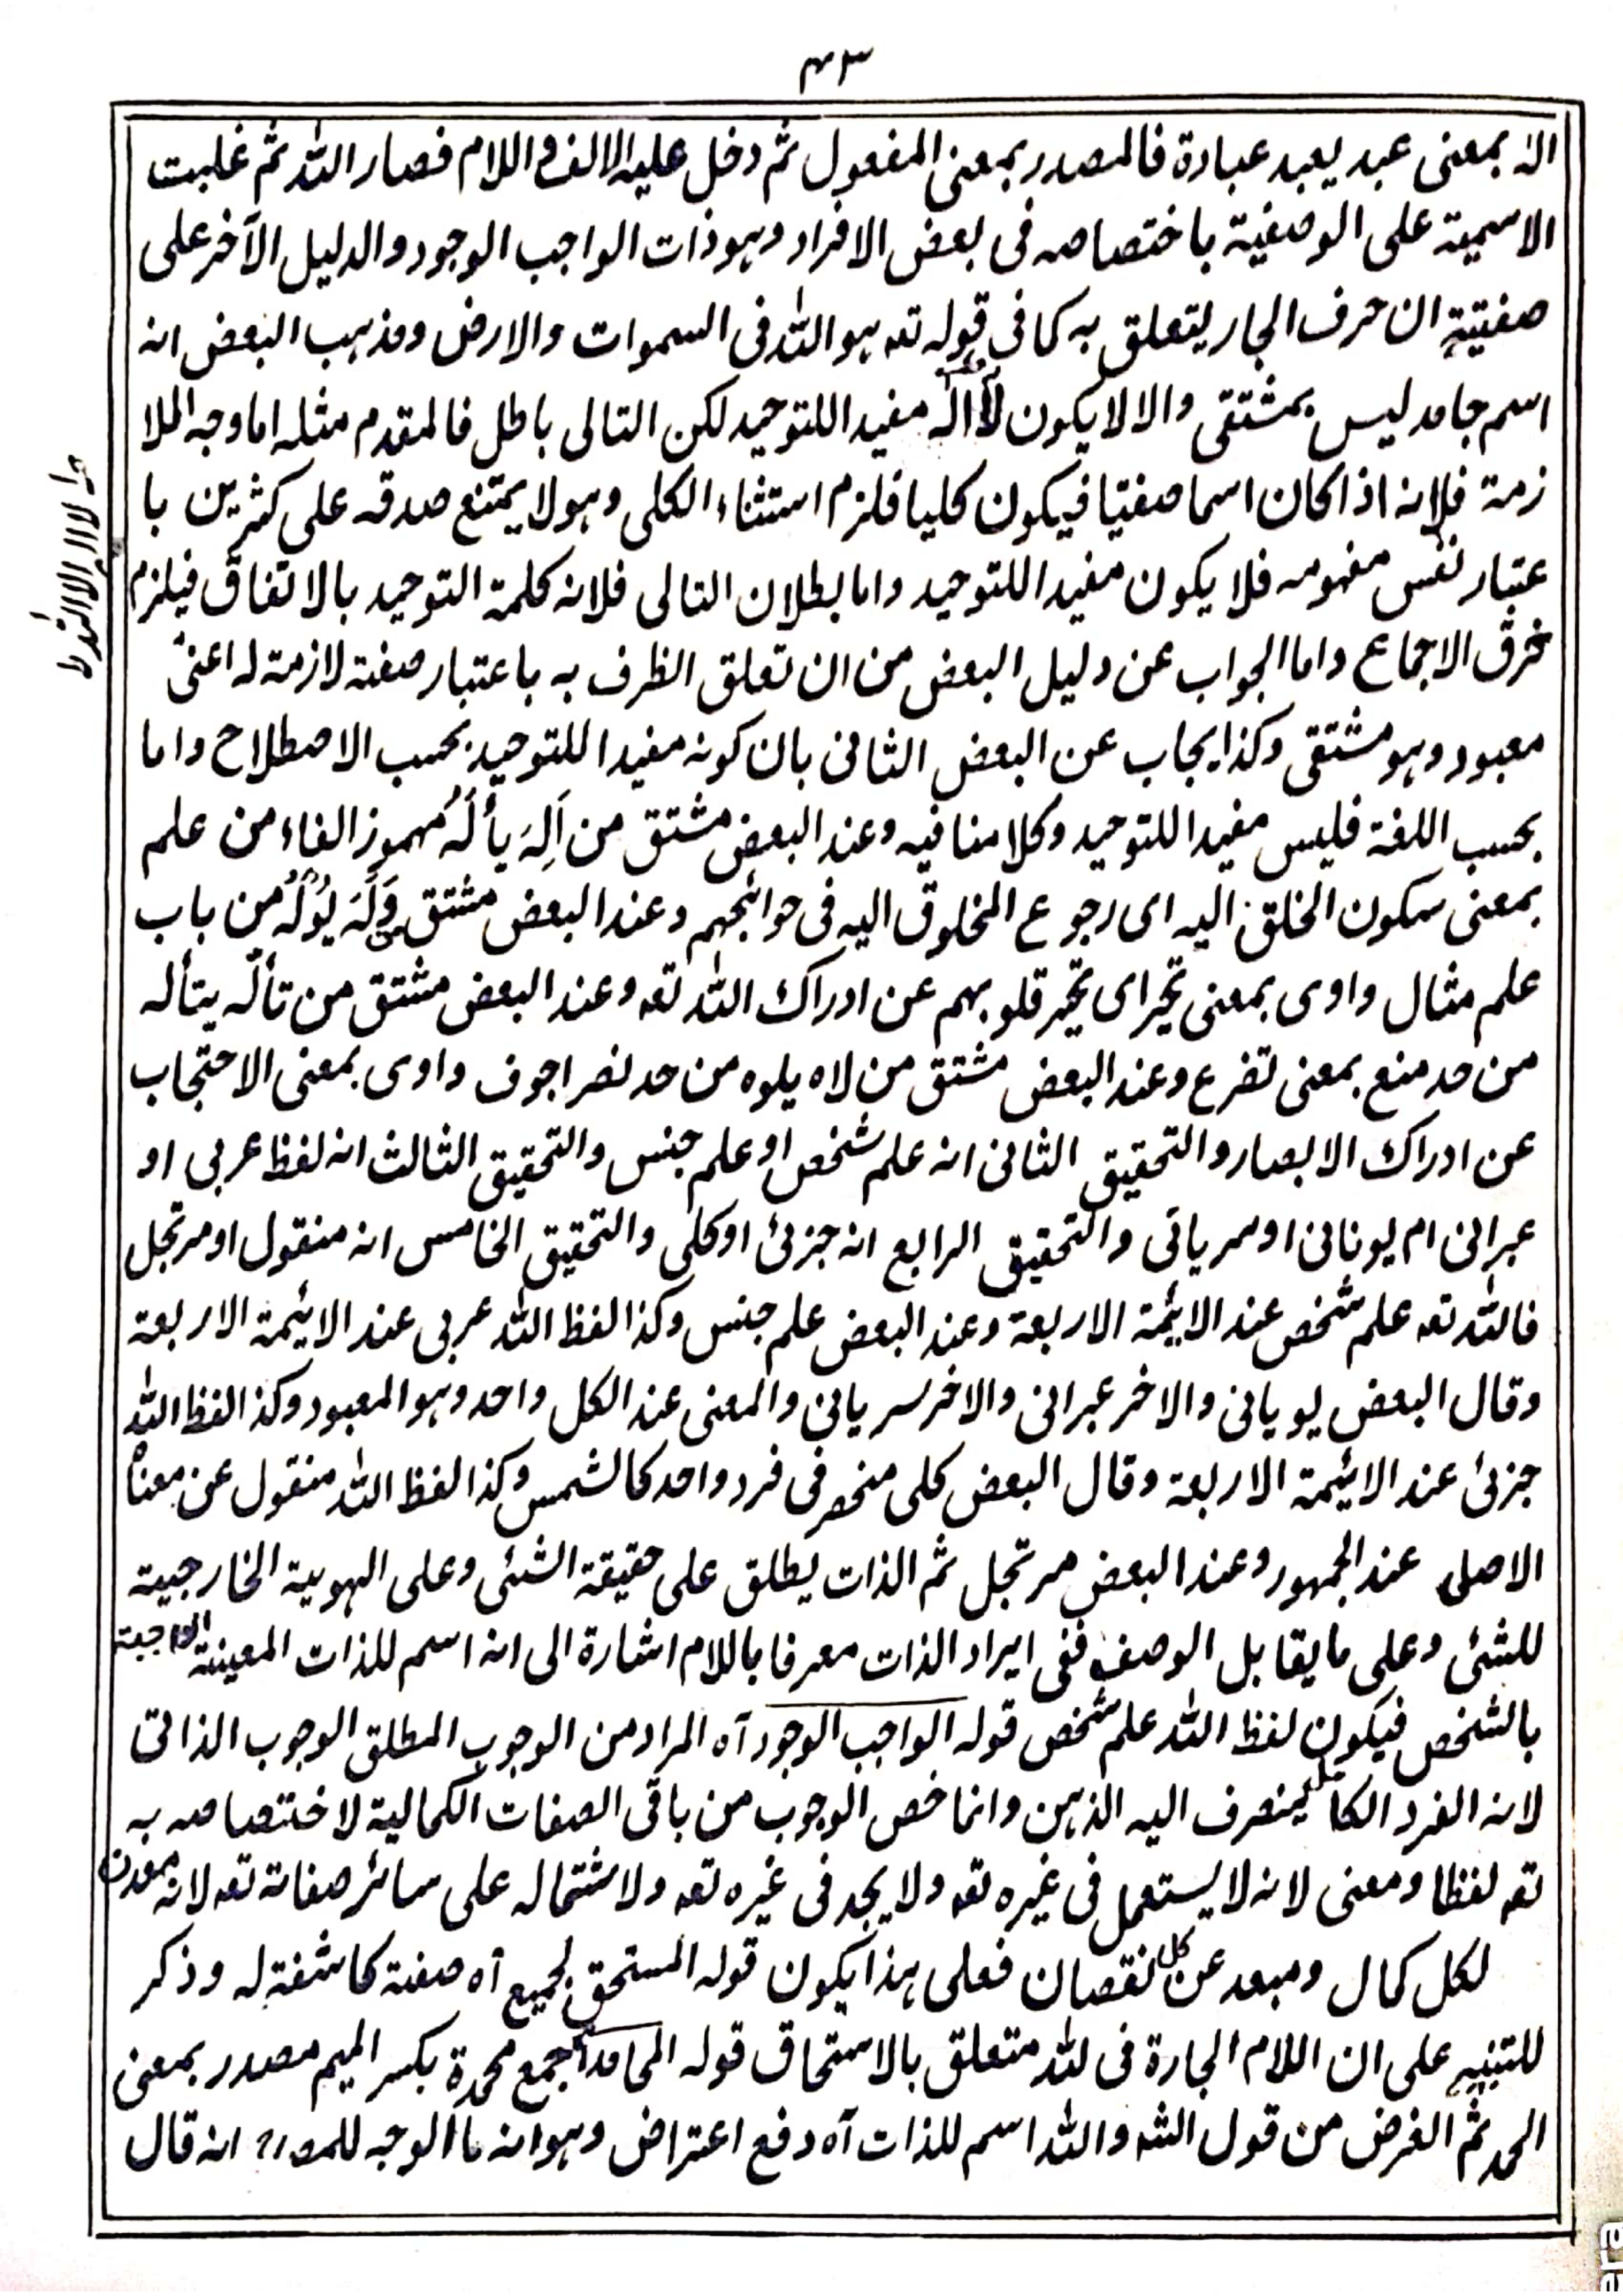 ٤٣
الٰہ بمعنی عبد یعبد عبادة فالمصدر بمعنی المفعول ثم دخل علیہ الالف و اللام فصار اللہ ثم غلبت
الاسمیة علی الوصفیة باختصاصہ فی بعض الافراد وہو ذات الواجب الوجود والدلیل الآخر علی
صفتیتہ ان حرف الجار یتعلق بہ کما فی قولہ تعہ ہو اللہ فی السموات والارض ومذہب البعض انہ
اسم جامد لیس بمشتقی والا لا یکون لا الہ مفیدا للتوحید لکن التالی باطل فالمقدم مثلہ اما وجہ الملا
زمة فلانہ اذا کان اسما صفتیا فیکون کلیا فلزم استثناء الکلی وہو لا یمتنع صدقہ علی کثرین با
عتبار نفس مفہومہ فلا یکون مفیدا للتوحید واما بطلان التالی فلانہ کلمة التوحید بالاتفاق فیلزم
خرق الاجماع واما الجواب عن دلیل البعض من ان تعلق الظرف بہ باعتبار صفتہ لازمة لہ اعنی
معبود وہو مشتقی وکذا یجاب عن البعض الثانی بان کونہ مفیدا للتوحید بحسب الاصطلاح واما
بحسب اللغة فلیس مفیدا للتوحید وکلامنا فیہ وعند البعض مشتق من اَلِہَ یألَہُ مہموز الفاء من علم
بمعنی سکون الخلق الیہ ای رجوع المخلوق الیہ فی حوائجہم وعند البعض مشتق وَلَہَ یُوْلَہُ من باب
علم مثال واوی بمعنی تحیر ای تحیر قلوبہم عن ادراک اللہ تعہ وعند البعض مشتق من تألّہ یتألہ
من حد منع بمعنی تضرع وعند البعض مشتق من لاہ یلوہ من حد نصر اجوف واوی بمعنی الاحتجاب
عن ادراک الابصار والتحقیق الثانی انہ علم شخص او علم جنس والتحقیق الثالث انہ لفظ عربی او
عبرانی ام یونانی او سریانی والتحقیق الرابع انہ جزئ او کلی والتحقیق الخامس انہ منقول او مرتجل
فاللہ تعہ علم شخص عند الایئمة الاربعة وعند البعض علم جنس وکذا لفظ اللہ عربی عند الایئمة الاربعة
وقال البعض یویانی والاخر عبرانی والاخر سریانی والمعنی عند الکل واحد وہو المعبود وکذا لفظ اللہ
جزئ عند الایئمة الاربعة وقال البعض کلی منحصر فی فرد واحد کالشمس وکذا لفظ اللہ منقول عن معناہ
الاصلی عند الجمہور وعند البعض مرتجل ثم الذات یطلق علی حقیقة الشئی وعلی الہویة الخارجیة
للشئی وعلی ما یقابل الوصف ففی ایراد الذات معرفا باللام اشارة الی انہ اسم للذات المعینة الواجبة
بالشخص فیکون لفظ اللہ علم شخص قولہ الواجب الوجود آہ المراد من الوجوب المطلق الوجوب الذاتی
لانہ الفرد الکامل ینصرف الیہ الذہن وانما خص الوجوب من باقی الصفات الکمالیة لاختصاصہ بہ
تعہ لفظا ومعنی لانہ لا یستعمل فی غیرہ تعہ ولا یجد فی غیرہ تعہ ولاشتمالہ علی سائر صفاتہ تعہ لانہ معدن
لکل کمال ومبعد عن کل نقصان فعلی ہذا یکون قولہ المستحق لجمیع آہ صفة کاشفة لہ وذکر
للتنبیہ علی ان اللام الجارة فی للہ متعلق بالاستحاق قولہ المحامد آہ جمع محمدة بکسر المیم مصدر بمعنی
الحمد ثم الغرض من قول الشہ واللہ اسم للذات آہ دفع اعتراض وہو انہ ما الوجہ للمصہ انہ قال
لا الہ الا اللہ